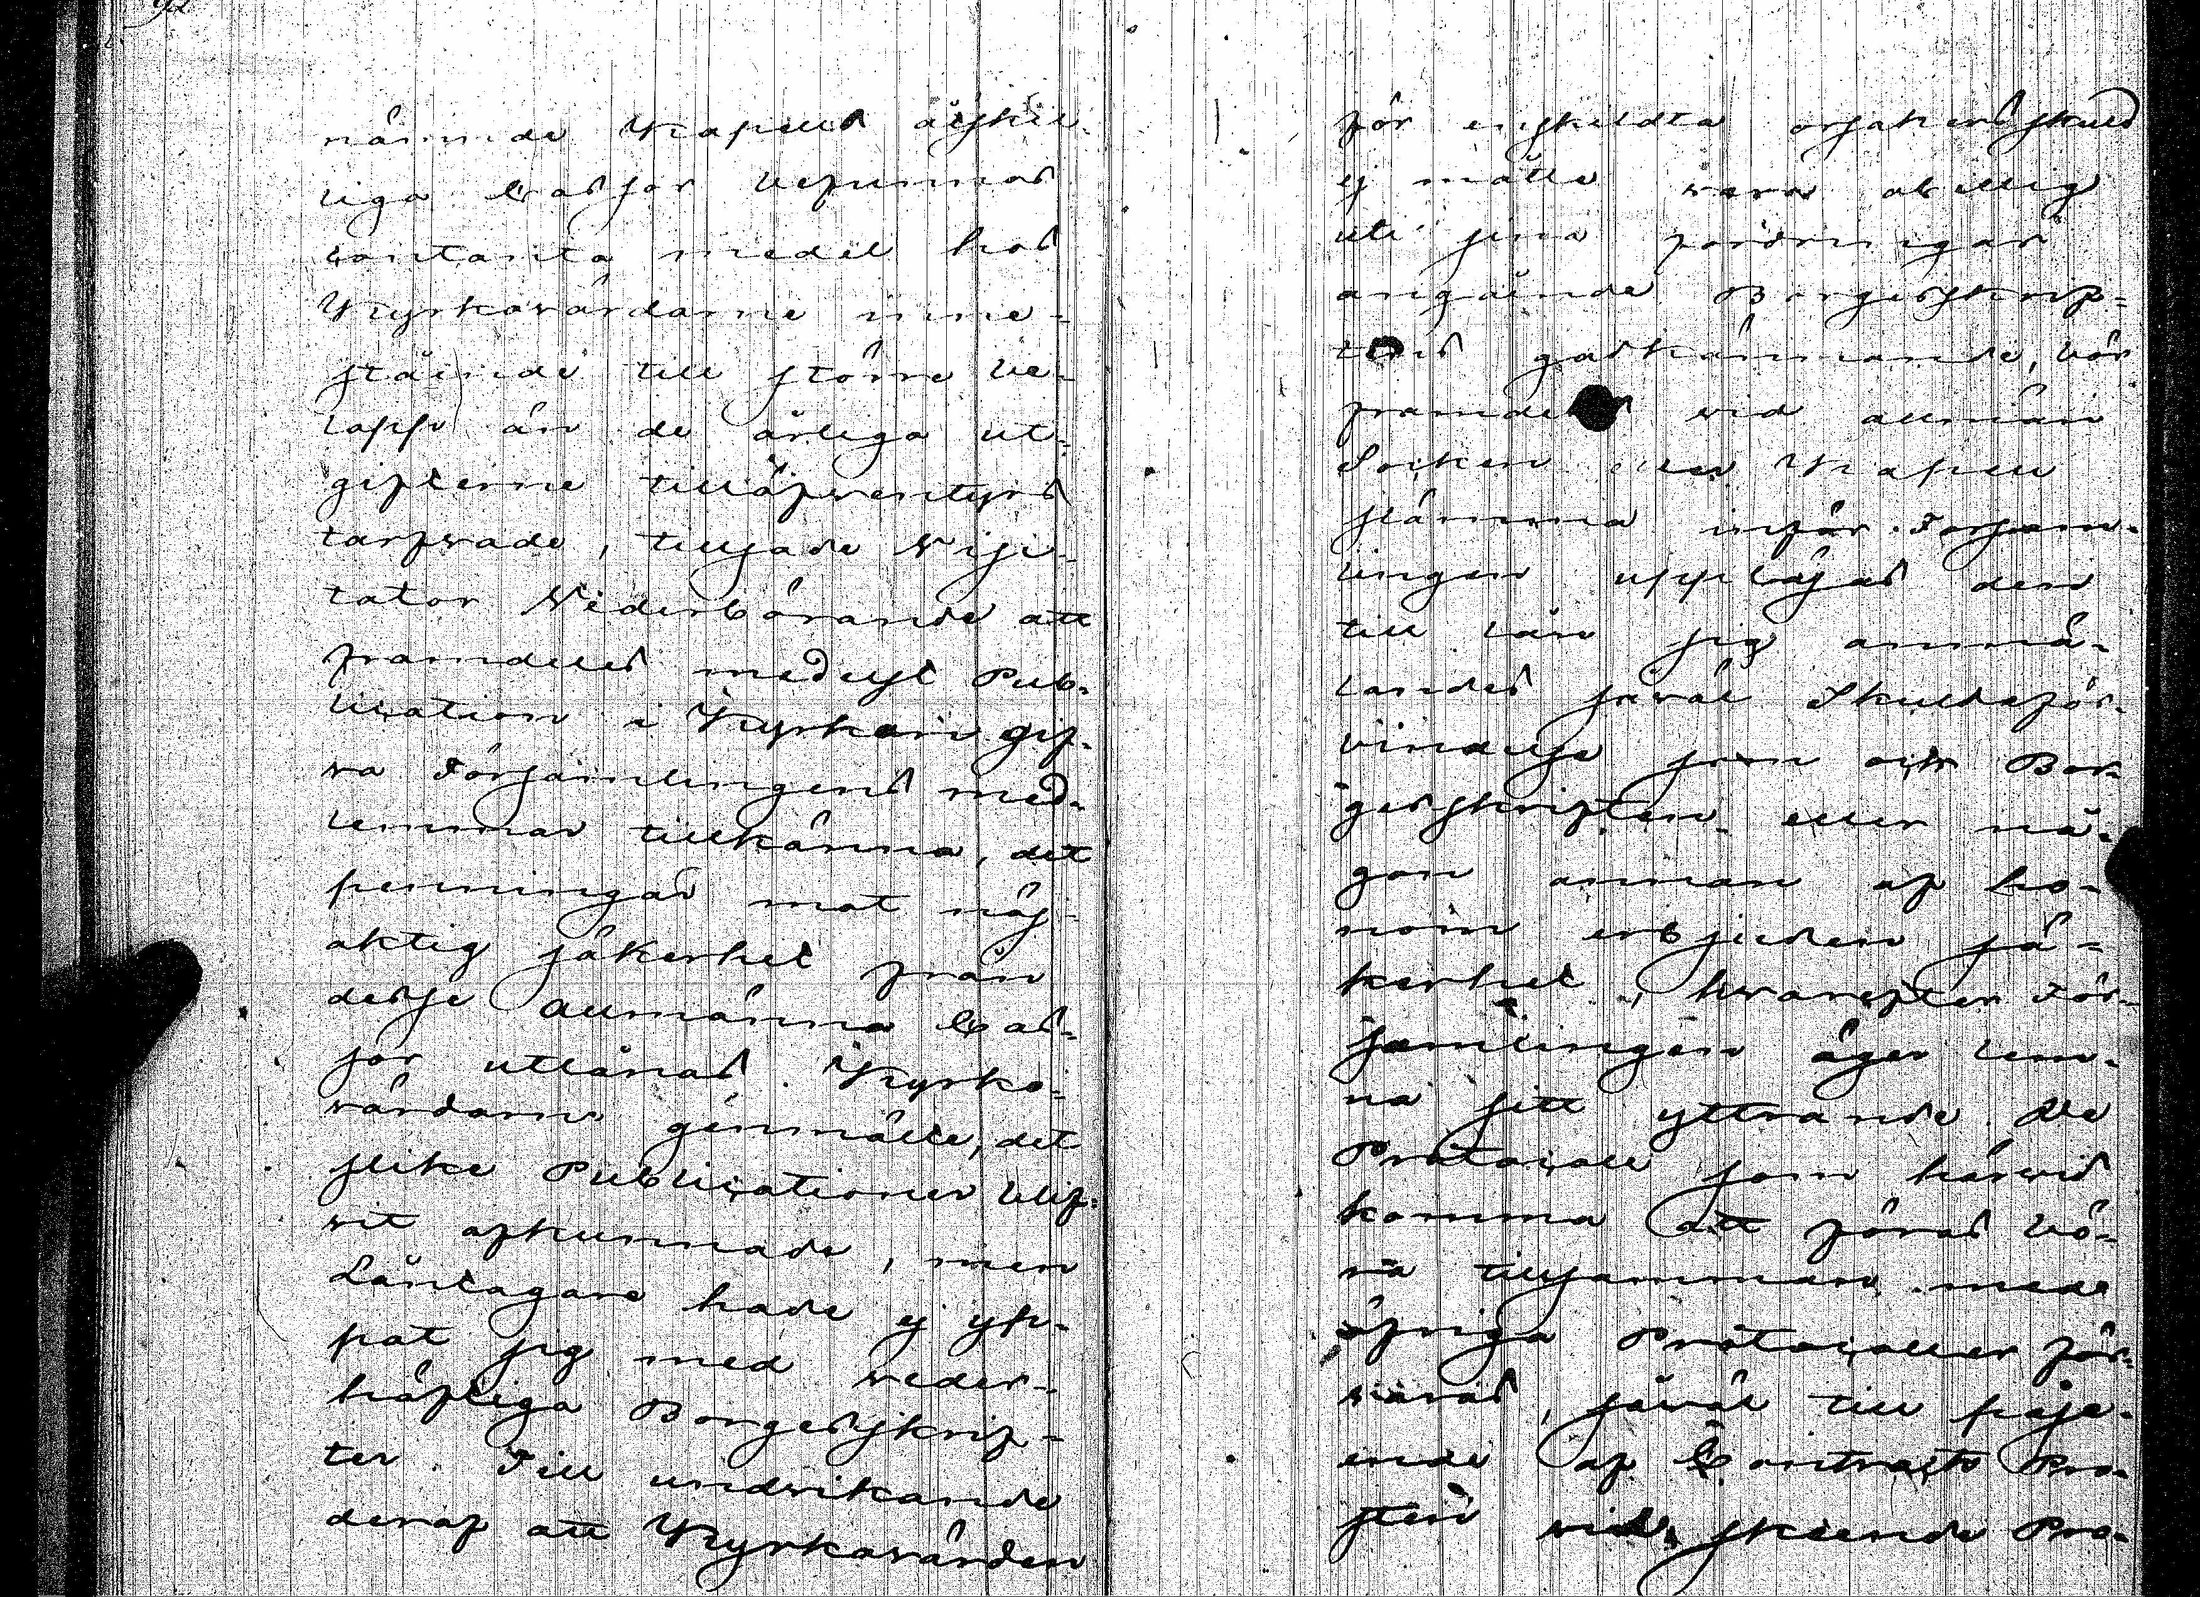 92
nämnde Kapells åtskil-
liga Cassor befunnos
contanta medel hos
Kyrkovärdarne inne-
stående till större be-
lopp än de årliga ut-
gifterne tilläfventyrs
tarfvade, tillsade Visi-
tator Vederbörande att
framdeles medelst Pub-
lication i Kyrkan gif-
va Församlingens med-
lemmar tillkänna, det
penningar mot nöj-
aktig säkerhet från
desse allmänna Cas-
sor utlånas. Kyrko-
värdarne genmälte, det
slike Publicationer blif-
vit afkunnade, men
Låntagare hade ej yp-
pat sig med veder-
häftiga Borgesskrif-
ter. Till undvikande
deraf att Kyrkovärden
för enskildta orsakers skuld
ej måtte vara obillig
uti sina fordringar
angående Borgesskrif-
tens godkännande, bör
framdeles vid allmän
Socken eller Kapell
stämma inför Försam-
lingen uppläsas den
till lån sig anmä-
landes såväl Skuldför-
bindelse som ock Bor-
gesskriften eller nå-
gon annan af ho-
nom erbjuden sä-
kerhet, hvarefter För-
samlingen äger lem-
na sitt yttrande. De
Protocoll som härvid
komma att föras bö-
ra tillsammans med
öfriga Protocoller för-
varas, såväl till påse-
ende af Contracts Pro-
sten vid skeende Pro-